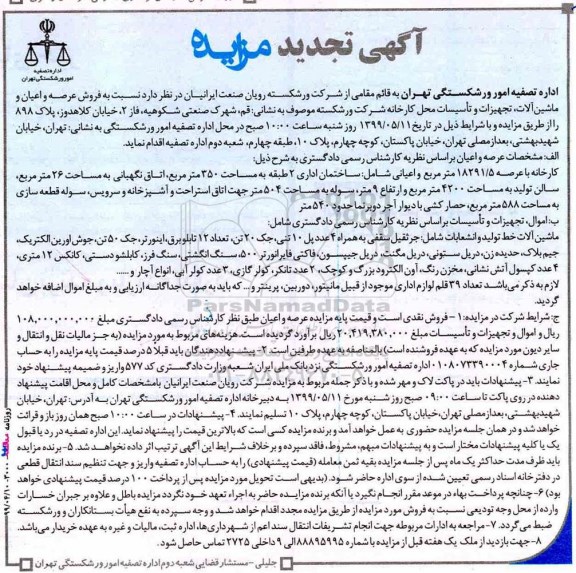 اداره تصفیه
امور ورشکستگی تهران
آگهی تجدید مزایده
اداره تصفیه امور ورشکستگی تهران به قائم مقامی از شرکت ورشکسته رویان صنعت ایرانیان در نظر دارد نسبت به فروش عرصه و اعیان و
ماشین‌آلات، تجهیزات و تأسیسات محل کارخانه شرکت ورشکسته موصوف به نشانی: قم، شهرک صنعتی شکوهیه، فاز ۲، خیابان کلاهدوز، پلاک ۸۹۸
را از طریق مزایده و با شرایط ذیل در تاریخ ۱۳۹۹/۰۵/۱۱ روز شنبه ساعت ۱۰:۰۰ صبح در محل اداره تصفیه امور ورشکستگی به نشانی: تهران، خیابان
شهیدبهشتی، بعداز مصلی تهران، خیابان پاکستان، کوچه چهارم، پلاک ۱۰، طبقه چهارم، شعبه دوم اداره تصفیه اقدام نماید.
الف: مشخصات عرصه و اعیان براساس نظریه کارشناس رسمی دادگستری به شرح ذیل:
کارخانه با عرصه ۱۸۲۹۱/۵ متر مربع و اعیانی شامل: ساختمان اداری ۲ طبقه به مساحت ۳۵۰ متر مربع، اتاق نگهبانی به مساحت ۲۶ متر مربع،
سالن تولید به مساحت ۴۲۰۰ متر مربع و ارتفاع ۹ متر، سوله به مساحت ۵۰۴ متر جهت اتاق استراحت و آشپزخانه و سرویس، سوله قطعه سازی
به مساحت ۵۸۸ متر مربع، حصار کشی با دیوار آجر دوبرنما حدود ۵۴۰ متر
ب: اموال، تجهیزات و تأسیسات براساس نظریه کارشناس رسمی دادگستری شامل:
ماشین آلات خط تولید و انشعابات شامل: جرثقیل سقفی به همراه ۴ عدد پل ۱۰ تنی، جک ۲۰ تن، تعداد ۱۲ تابلو برق، اینورتر، جک ۵۰ تن، جوش اورین الکتریک،
جیم بلاک، حدیده زن، دریل ستونی، دریل مگنت، دریل جیپسون، فاکتی فایرانورتر ۵۰۰، سنگ انگشتی، سنگ فرز، کابلشو دستی، کانکس ۱۲ متری،
۴ عدد کپسول آتش نشانی، مخزن رنگ، آون الکترود بزرگ و کوچک، ۲ عدد تانکر، کولر گازی، ۳ عدد کولر آبی، انواع آچار و ......
لازم به ذکر می‌باشد تعداد ۳۹ قلم لوازم اداری موجود از قبیل مانیتور، دوربین، پرینتر و ... که باید به صورت جداگانه ارزیابی و به مبلغ اموال اضافه خواهد
گردید.
ج: شرایط شرکت در مزایده: ۱- فروش نقدی است و قیمت پایه مزایده عرصه و اعیان طبق نظر کارشناس رسمی دادگستری مبلغ ۱۰۸,۰۰۰,۰۰۰,۰۰۰
ریال و اموال و تجهیزات و تأسیسات مبلغ ۲۰,۴۱۹,۳۸۰,۰۰۰ ریال برآورد گردیده است. هزینه‌های مربوط به مورد مزایده (به جز مالیات نقل و انتقال و
سایر دیون مورد مزایده که به عهده فروشنده است) بالمناصفه به عهده طرفین است. ۲- پیشنهاد دهندگان باید قبلا ۵ درصد قیمت پایه مزایده را به حساب
جاری شماره ۰۱۰۸۰۷۳۳۹۰۰۰۴ اداره تصفیه امور ورشکستگی نزد بانک ملی ایران شعبه وزارت دادگستری کد ۵۷۷ واریز و ضمیمه پیشنهاد خود
نمایند. ۳- پیشنهادات باید در پاکت لاک و مهر شده و با ذکر جمله مربوط به مزایده شرکت رویان صنعت ایرانیان با مشخصات کامل و محل اقامت پیشنهاد
دهنده در روی پاکت تا ساعت ۰۹:۰۰ صبح روز شنبه مورخ ۱۳۹۹/۰۵/۱۱ به دبیرخانه اداره تصفیه امور ورشکستگی تهران به آدرس: تهران، خیابان
شهیدبهشتی، بعداز مصلی تهران، خیابان پاکستان، کوچه چهارم، پلاک ۱۰ تسلیم نمایند. ۴- پیشنهادات در ساعت ۱۰:۰۰ صبح همان روز باز و قرائت
خواهد شد و در همان جلسه مزایده حضوری به عمل خواهد آمد و برنده مزایده کسی است که بالاترین قیمت را پیشنهاد نماید. این اداره تصفیه در رد یا قبول
یک یا کلیه پیشنهادات مختار است و به پیشنهادات مبهم، مشروط، فاقد سپرده و بر خلاف شرایط این آگهی ترتیب اثر داده نخواهد شد. ۵- برنده مزایده
باید ظرف مدت حداکثر یک ماه پس از جلسه مزایده بقیه ثمن معامله (قیمت پیشنهادی) را به حساب اداره تصفیه واریز و جهت تنظیم سند انتقال قطعی
در دفترخانه اسناد رسمی تعیین شده از سوی اداره حاضر شود. (بدیهی است تحویل مورد مزایده پس از پرداخت ۱۰۰ درصد قیمت پیشنهادی خواهد
بود) ۶- چنانچه پرداخت بهاء در موعد مقرر انجام نگیرد یا آنکه برنده مزایده حاضر به اجراء تعهد خود نگردد مزایده باطل و علاوه بر جبران خسارات
وارده از محل وجه تودیعی نسبت به فروش مورد مزایده از طریق مزایده مجدد اقدام خواهد شد و وجه سپرده به نفع هیأت بستانکاران و ورشکسته
ضبط می‌گردد. ۷- مراجعه به ادارات مربوطه جهت انجام تشریفات انتقال سند اعم از شهرداری‌ها، اداره ثبت، مالیات و غیره به عهده خریدار می‌باشد.
۸- جهت بازدید از ملک یک هفته قبل از مزایده با شماره ۸۸۸۹۵۹۹۵ الی ۹ داخلی ۲۷۲۵ تماس حاصل شود.
جلیلی - مستشار قضایی شعبه دوم اداره تصفیه امور ورشکستگی تهران
ParsNamadData